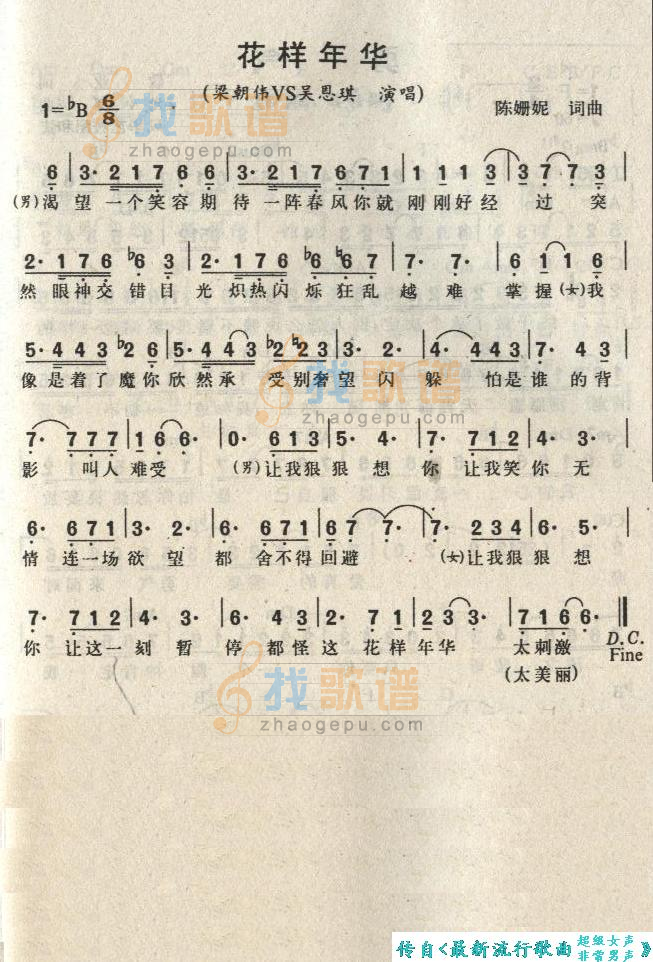 花样年华
(梁朝伟VS吴恩琪 演唱)
1=♭B 6/8
陈姗妮 词曲
找歌谱
zhaogepu.com
6 | 3· 2 1 7 6 6 | 3· 2 1 7 6 7 1 | 1 1 1 3 | 3 7 7 3 |
(男)渴 望 一个笑容期 待 一阵春风你就 刚 刚好经 过 突
2· 1 7 6 ♭6 3 | 2· 1 7 6 ♭6 ♮6 7 | 7· 7· | 6 1 1 6 |
然 眼神交 错目 光 炽热闪 烁狂乱 越 难 掌握(女)我
5· 4 4 3 ♭2 6 | 5· 4 4 3 ♭2 ♮2 3 | 3· 2· | 4· 4 4 3 | 7· 4 3 |
像 是着了 魔你 欣 然承 受别奢 望 闪 躲 怕是谁 的背
找歌谱
zhaogepu.com
7· 7 7 7 | 1 6 6· | 0· 6 1 3 | 5· 4· | 7· 7 1 2 | 4· 3· |
影 叫人 难受 (男)让我狠 狠 想 你 让我笑 你 无
6· 6 7 1 | 3· 2· | 6· 6 7 1 | 6 7 7· | 7· 2 3 4 | 6· 5· |
情 连一场 欲 望 都 舍不得 回避 (女)让我狠 狠 想
7· 7 1 2 | 4· 3· | 6· 4 3 | 2· 7 1 | 2 3 3· | 7 1 6 6· ‖
你 让这一 刻 暂 停 都怪 这 花样 年华 太刺激 D.C.
(太美丽) Fine
找歌谱
zhaogepu.com
传自<最新流行歌曲 超级女声 非常男声 》